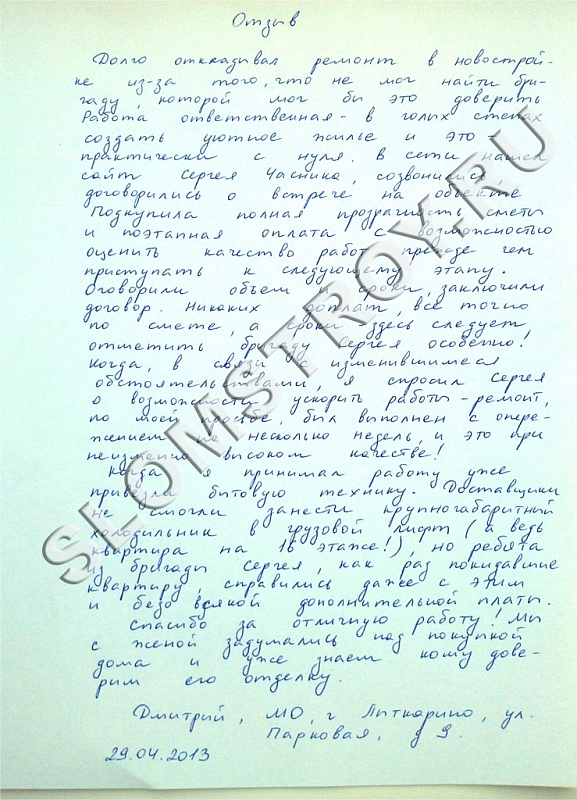 Отзыв
Долго откладывал ремонт в новострой-
ке из-за того, что не мог найти бри-
гаду, которой мог бы это доверить
Работа ответственная - в голых стенах
создать уютное жилье и это
практически с нуля. В сети нашел
сайт Сергея Часника, созвонились,
договорились о встрече на объекте.
Подкупила полная прозрачность сметы
и поэтапная оплата с возможностью
оценить качество работ прежде чем
приступать к следующему этапу.
Оговорили объем и сроки, заключили
договор. Никаких доплат, все точно
по смете, а сроки здесь следует
отметить бригаду Сергея особенно!
Когда, в связи с изменившимися
обстоятельствами, я спросил Сергея
о возможности ускорить работы - ремонт,
по моей просьбе, был выполнен с опере-
жением на несколько недель, и это при
неизменно высоком качестве!
Когда я принимал работу уже
привезли бытовую технику. Доставщики
не смогли занести крупногабаритный
холодильник в грузовой лифт (а ведь
квартира на 16 этаже!), но ребята
из бригады Сергея, как раз покидавшие
квартиру, справились даже с этим
и безо всякой дополнительной платы.
Спасибо за отличную работу! Мы
с женой задумались над покупкой
дома и уже знаем кому дове-
рим его отделку.
Дмитрий, МО, г Лыткарино, ул.
Парковая, д 9.
29.04.2013
SLOMSTROY.RU